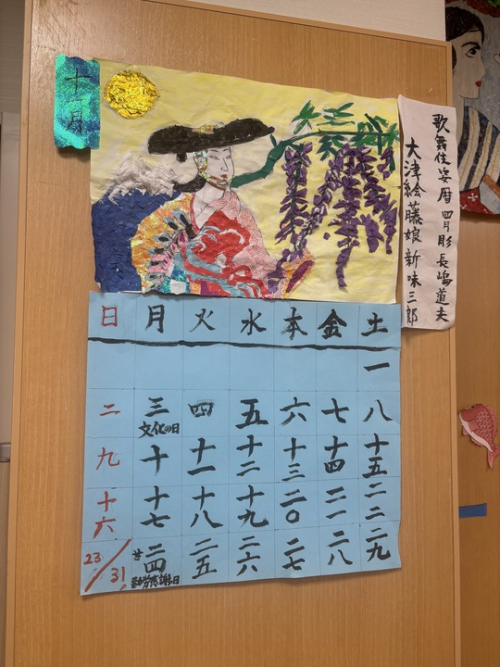 十一月
歌舞伎姿暦 長嶋道夫
大津絵藤娘 新味三郎
日 月 火 水 本 金 土
一
二 三 四 五 六 七 八
文化の日
九 十 十一 十二 十三 十四 十五
十六 十七 十八 十九 二〇 二一 二二
23/31 二四 二五 二六 二七 二八 二九